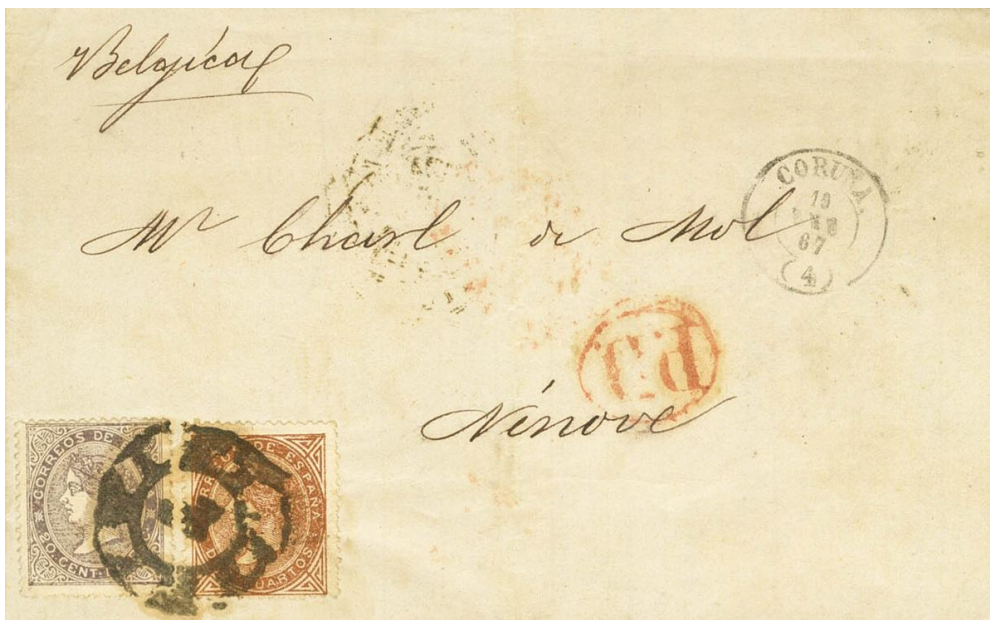 Belgica
CORUÑA.
19
ENE
67
(4)
Mr Charl de Mol
P.D
Ninove
CORREOS DE
20. CENT. D
CORREOS DE ESPAÑA
CUARTOS